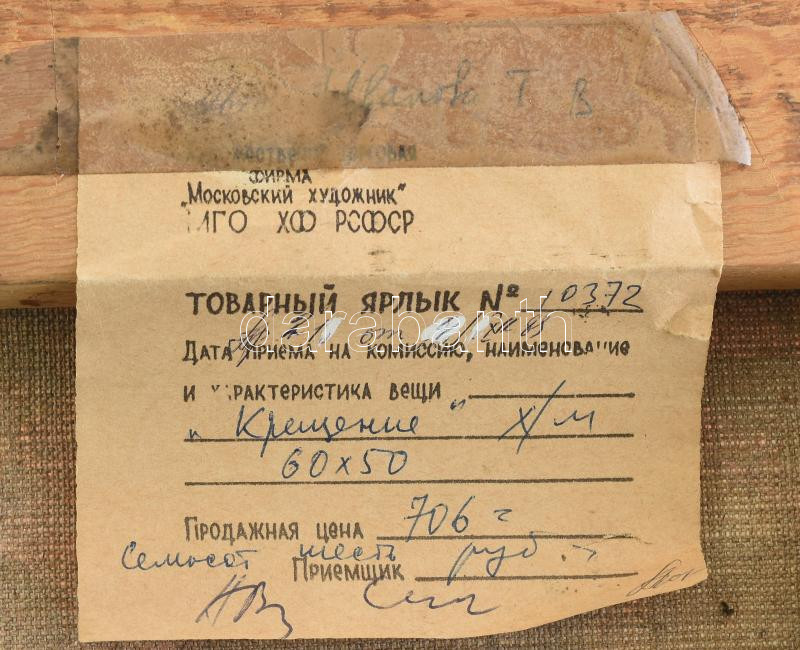 Иванова Т В
ФИРМА
„МОСКОВСКИЙ ХУДОЖНИК"
МГО ХФ РСФСР
ТОВАРНЫЙ ЯРЛЫК № 10372
darabanth
ДАТА ПРИЕМА НА КОМИССИЮ, НАИМЕНОВАНИЕ
И ХАРАКТЕРИСТИКА ВЕЩИ
„Крещение" х/м
60х50
ПРОДАЖНАЯ ЦЕНА 706
Семьсот шесть руб
ПРИЕМЩИК